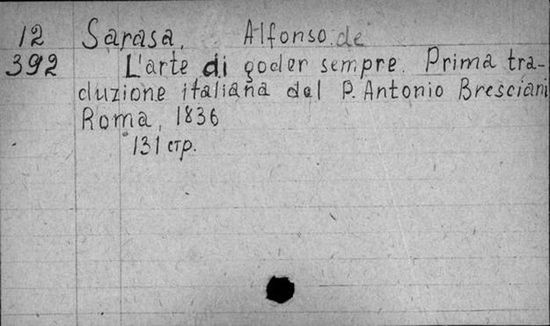 12 Sarasa, Alfonso de
392 L'arte di goder sempre. Prima tra-
duzione italiana del P. Antonio Bresciani
Roma, 1836
131 стр.